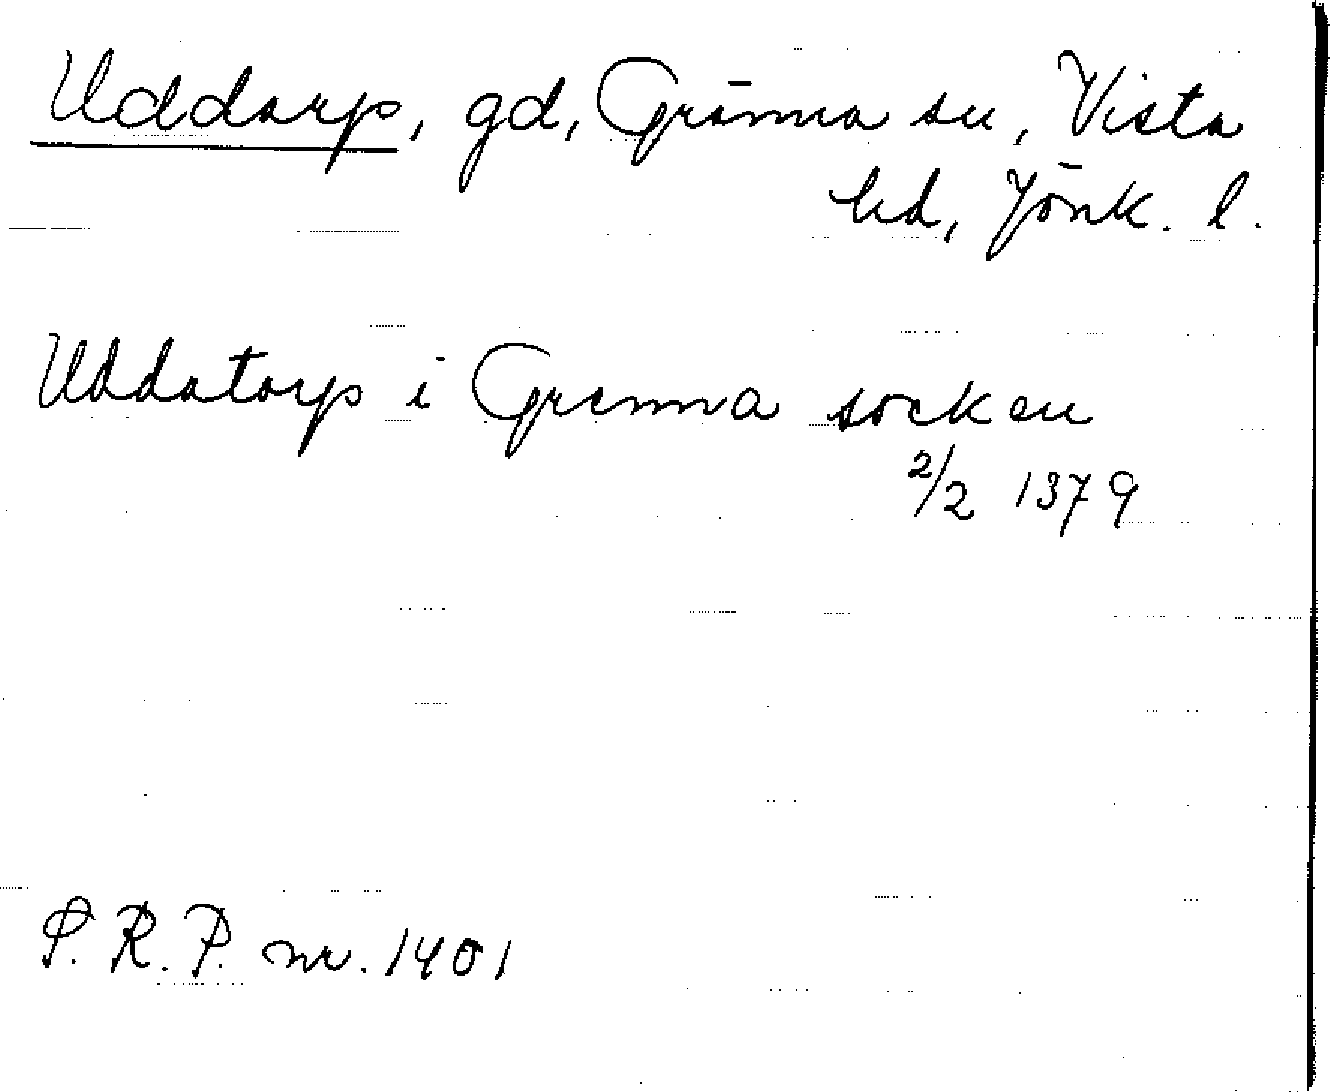 Uddarp, gd, Gränna sn, Vista
hd, Jönk. l.
Uddatorp i Grenna socken
2/2 1379
S. R. P. nr. 1401